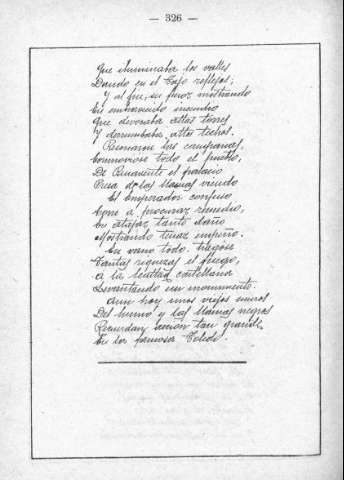 — 326 —
Que iluminaba los valles
Dando en el Tajo reflejos;
Y al fin, su furor mostrando
En embravecido incendio
Que devoraba altas torres
Y derrumbaba altos techos.
Resonaron las campanas,
Conmoviose todo el pueblo,
De Benavente el palacio
Presa de las llamas viendo
El Emperador confuso
Corre á procurar remedio,
En atajar tanto daño
Mostrando tenaz empeño.
En vano todo: tragóse
Tantas riquezas el fuego,
A la lealtad castellana
Levantando un monumento.
Aun hoy unos viejos muros
Del humo y las llamas negros
Recuerdan acción tan grande
En la famosa Toledo.